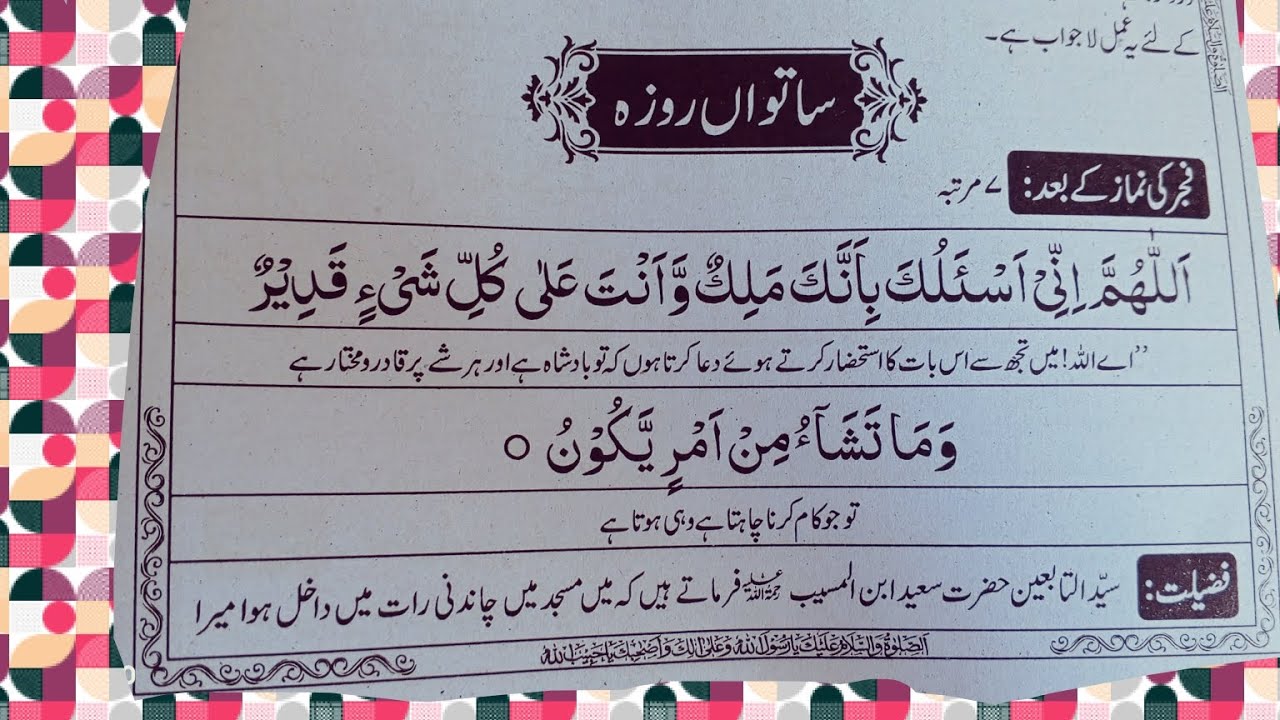 کے لئے یہ عمل لا جواب ہے۔
ساتواں روزہ
فجر کی نماز کے بعد: ۷ مرتبہ
اَللّٰهُمَّ اِنِّیْ اَسْئَلُكَ بِاَنَّكَ مَلِكٌ وَّاَنْتَ عَلٰی كُلِّ شَیْءٍ قَدِیْرٌ
”اے اللہ! میں تجھ سے اس بات کا استحضار کرتے ہوئے دعا کرتا ہوں کہ تو بادشاہ ہے اور ہر شے پر قادر و مختار ہے
وَمَا تَشَآءُ مِنْ اَمْرٍ یَّكُوْنُ ○
تو جو کام کرنا چاہتا ہے وہی ہوتا ہے
فضیلت: سیّد التابعین حضرت سعید ابن المسیب رحمۃ اللہ علیہ فرماتے ہیں کہ میں مسجد میں چاندنی رات میں داخل ہوا میرا
الصلوٰة والسلام علیك یا رسول الله وعلیٰ اٰلك واصحٰبك یا حبیب الله